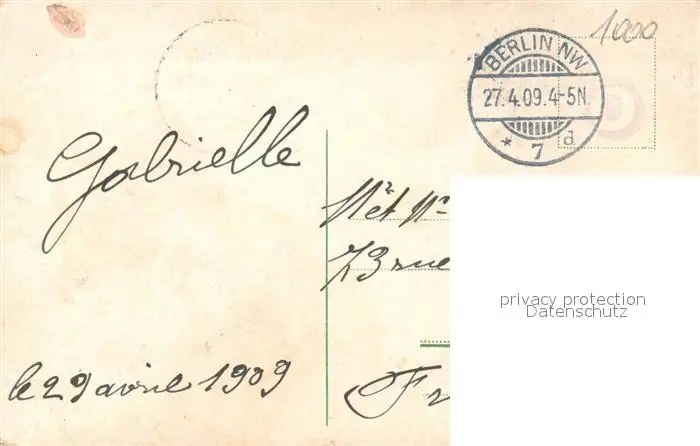 1000
BERLIN NW
27.4.09.4-5N.
* 7 d
Gabrielle
Mr et Mme
73 rue
privacy protection
Datenschutz
le 29 avril 1909
Fr